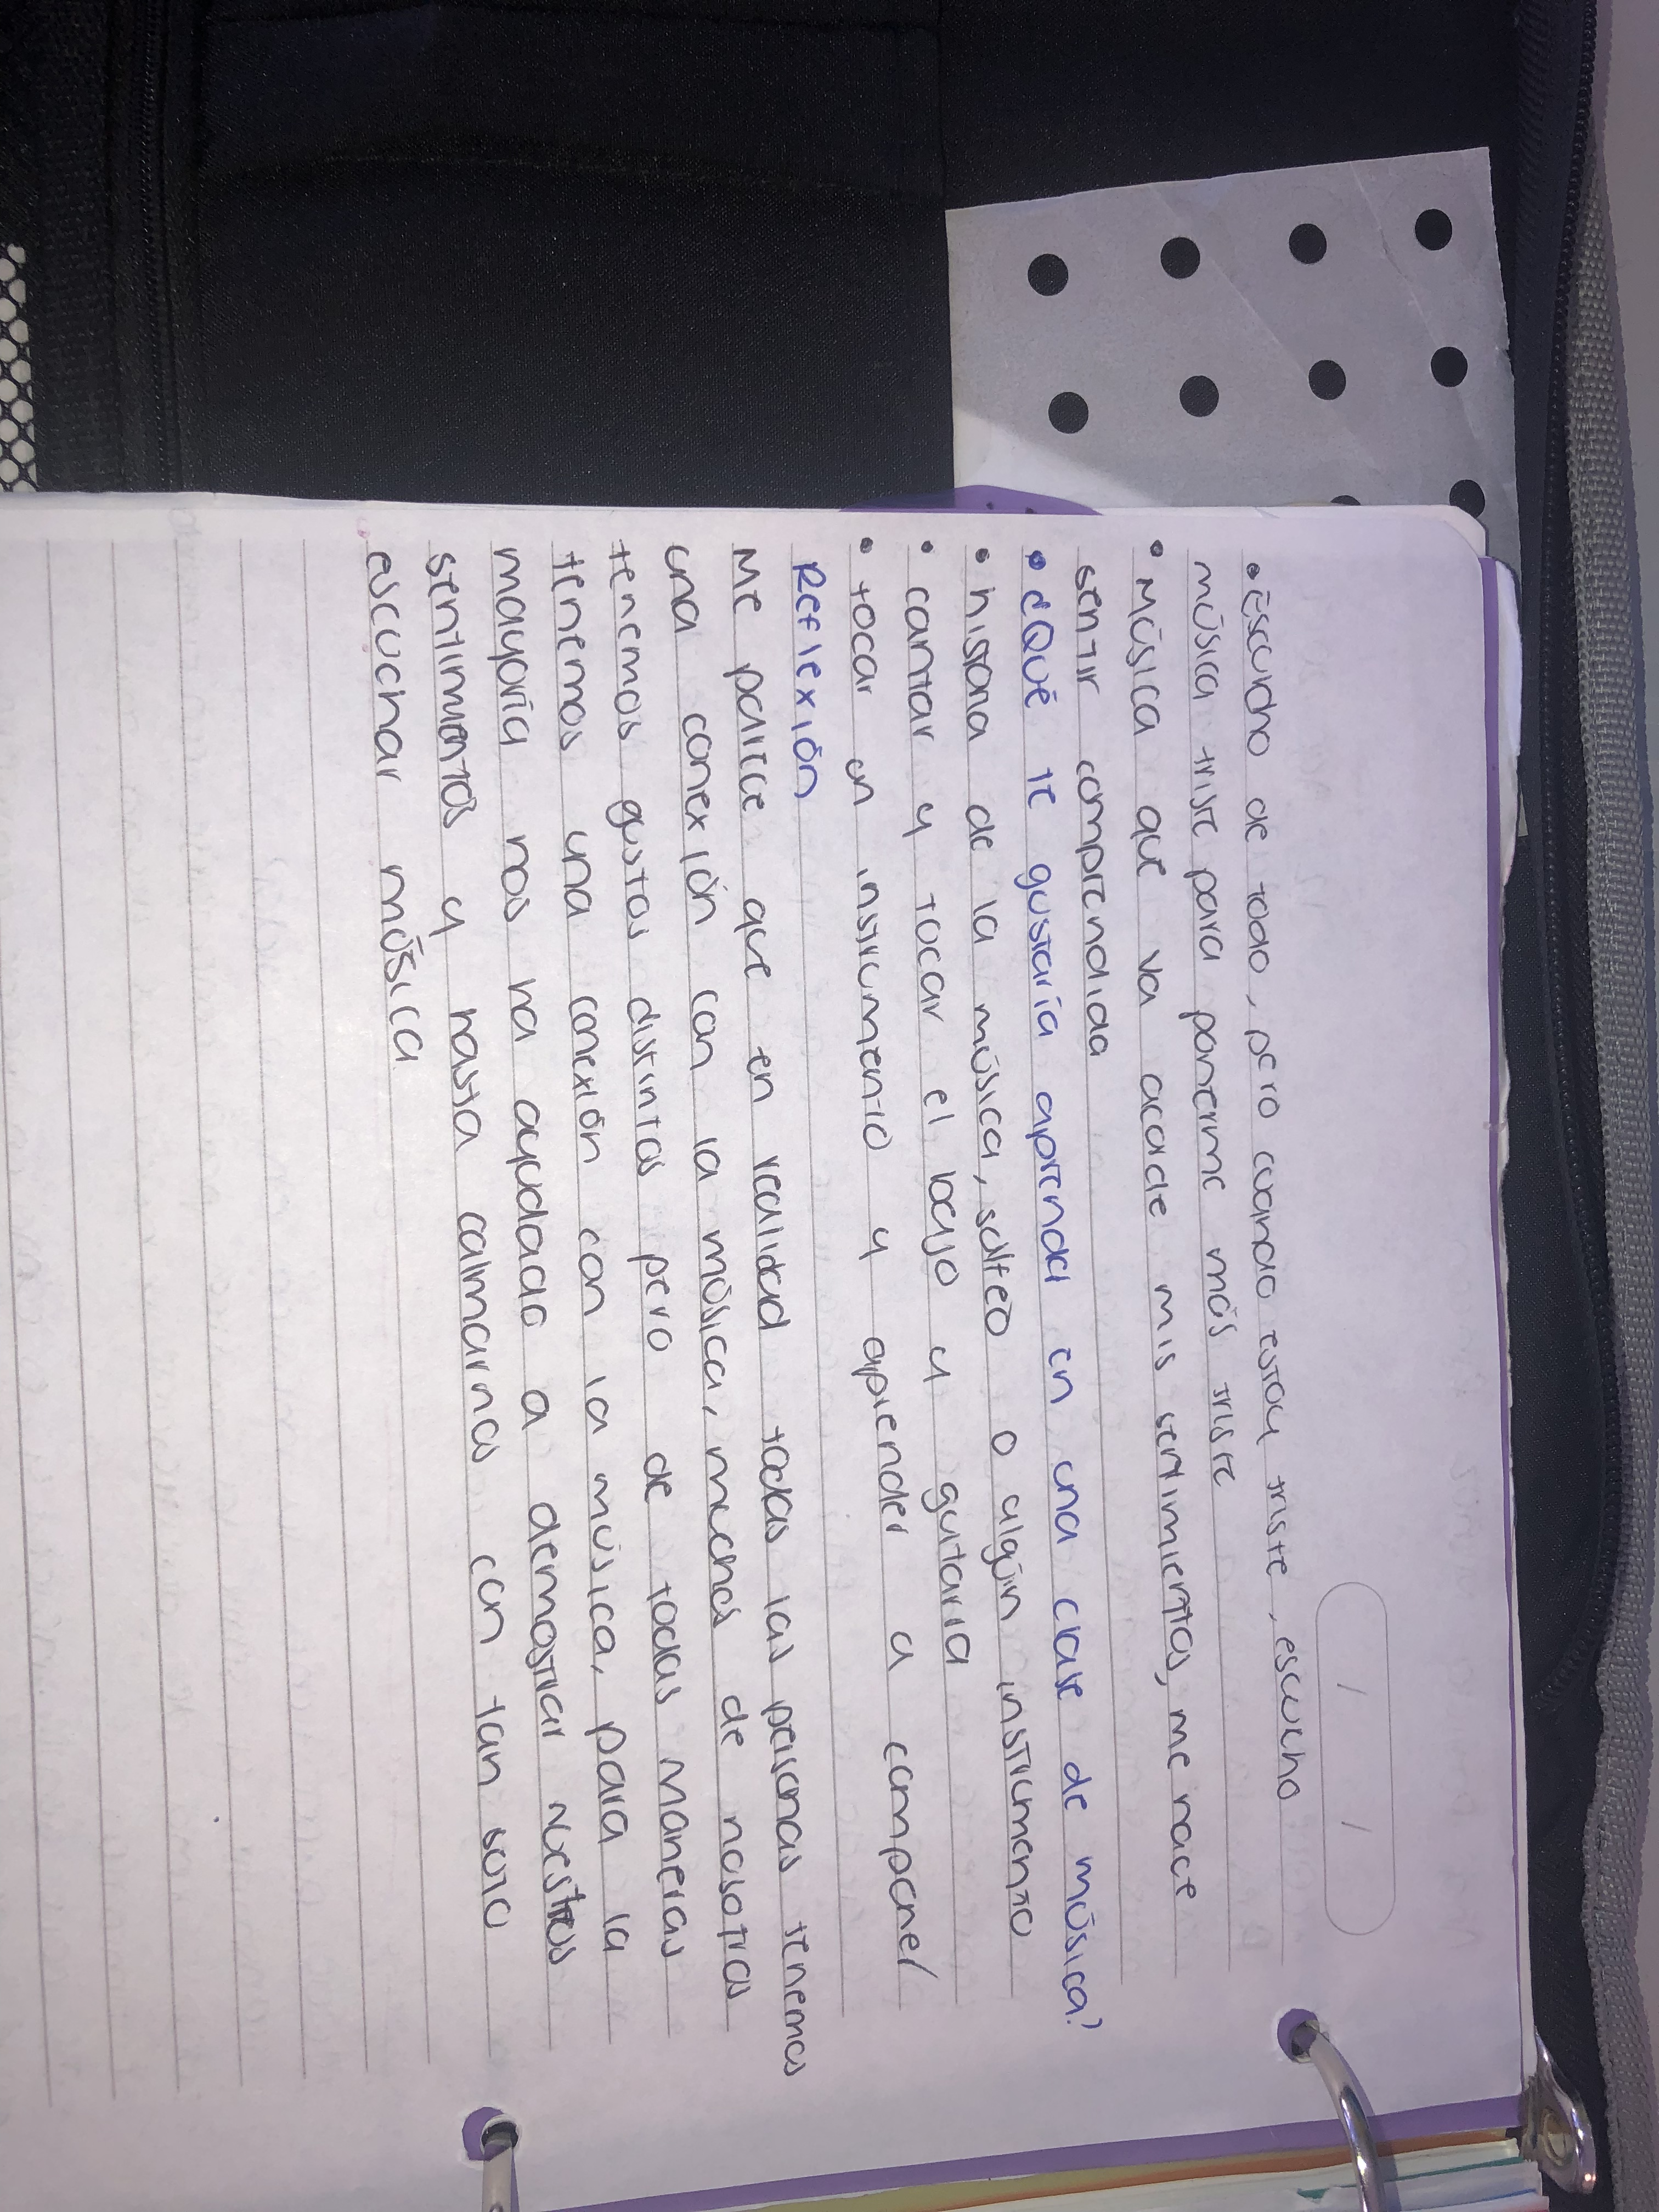 • Escucho de todo, pero cuando estoy triste, escucho
música triste para ponerme más triste
• Música que va acade mis sentimientos, me hace
sentir comprendida
• ¿Qué te gustaría aprender en una clase de música?
• historia de la música, solfeo o algún instrumento
• cantar y tocar el bajo y guitarra
• tocar un instrumento y aprender a componer
Reflexión
Me parece que en realidad todas las personas tenemos
una conexión con la música, muchos de nosotros
tenemos gustos distintos pero de todas maneras
tenemos una conexión con la música, para la
mayoría nos ha ayudado a demostrar nuestros
sentimientos y hasta calmarnos con tan solo
escuchar música